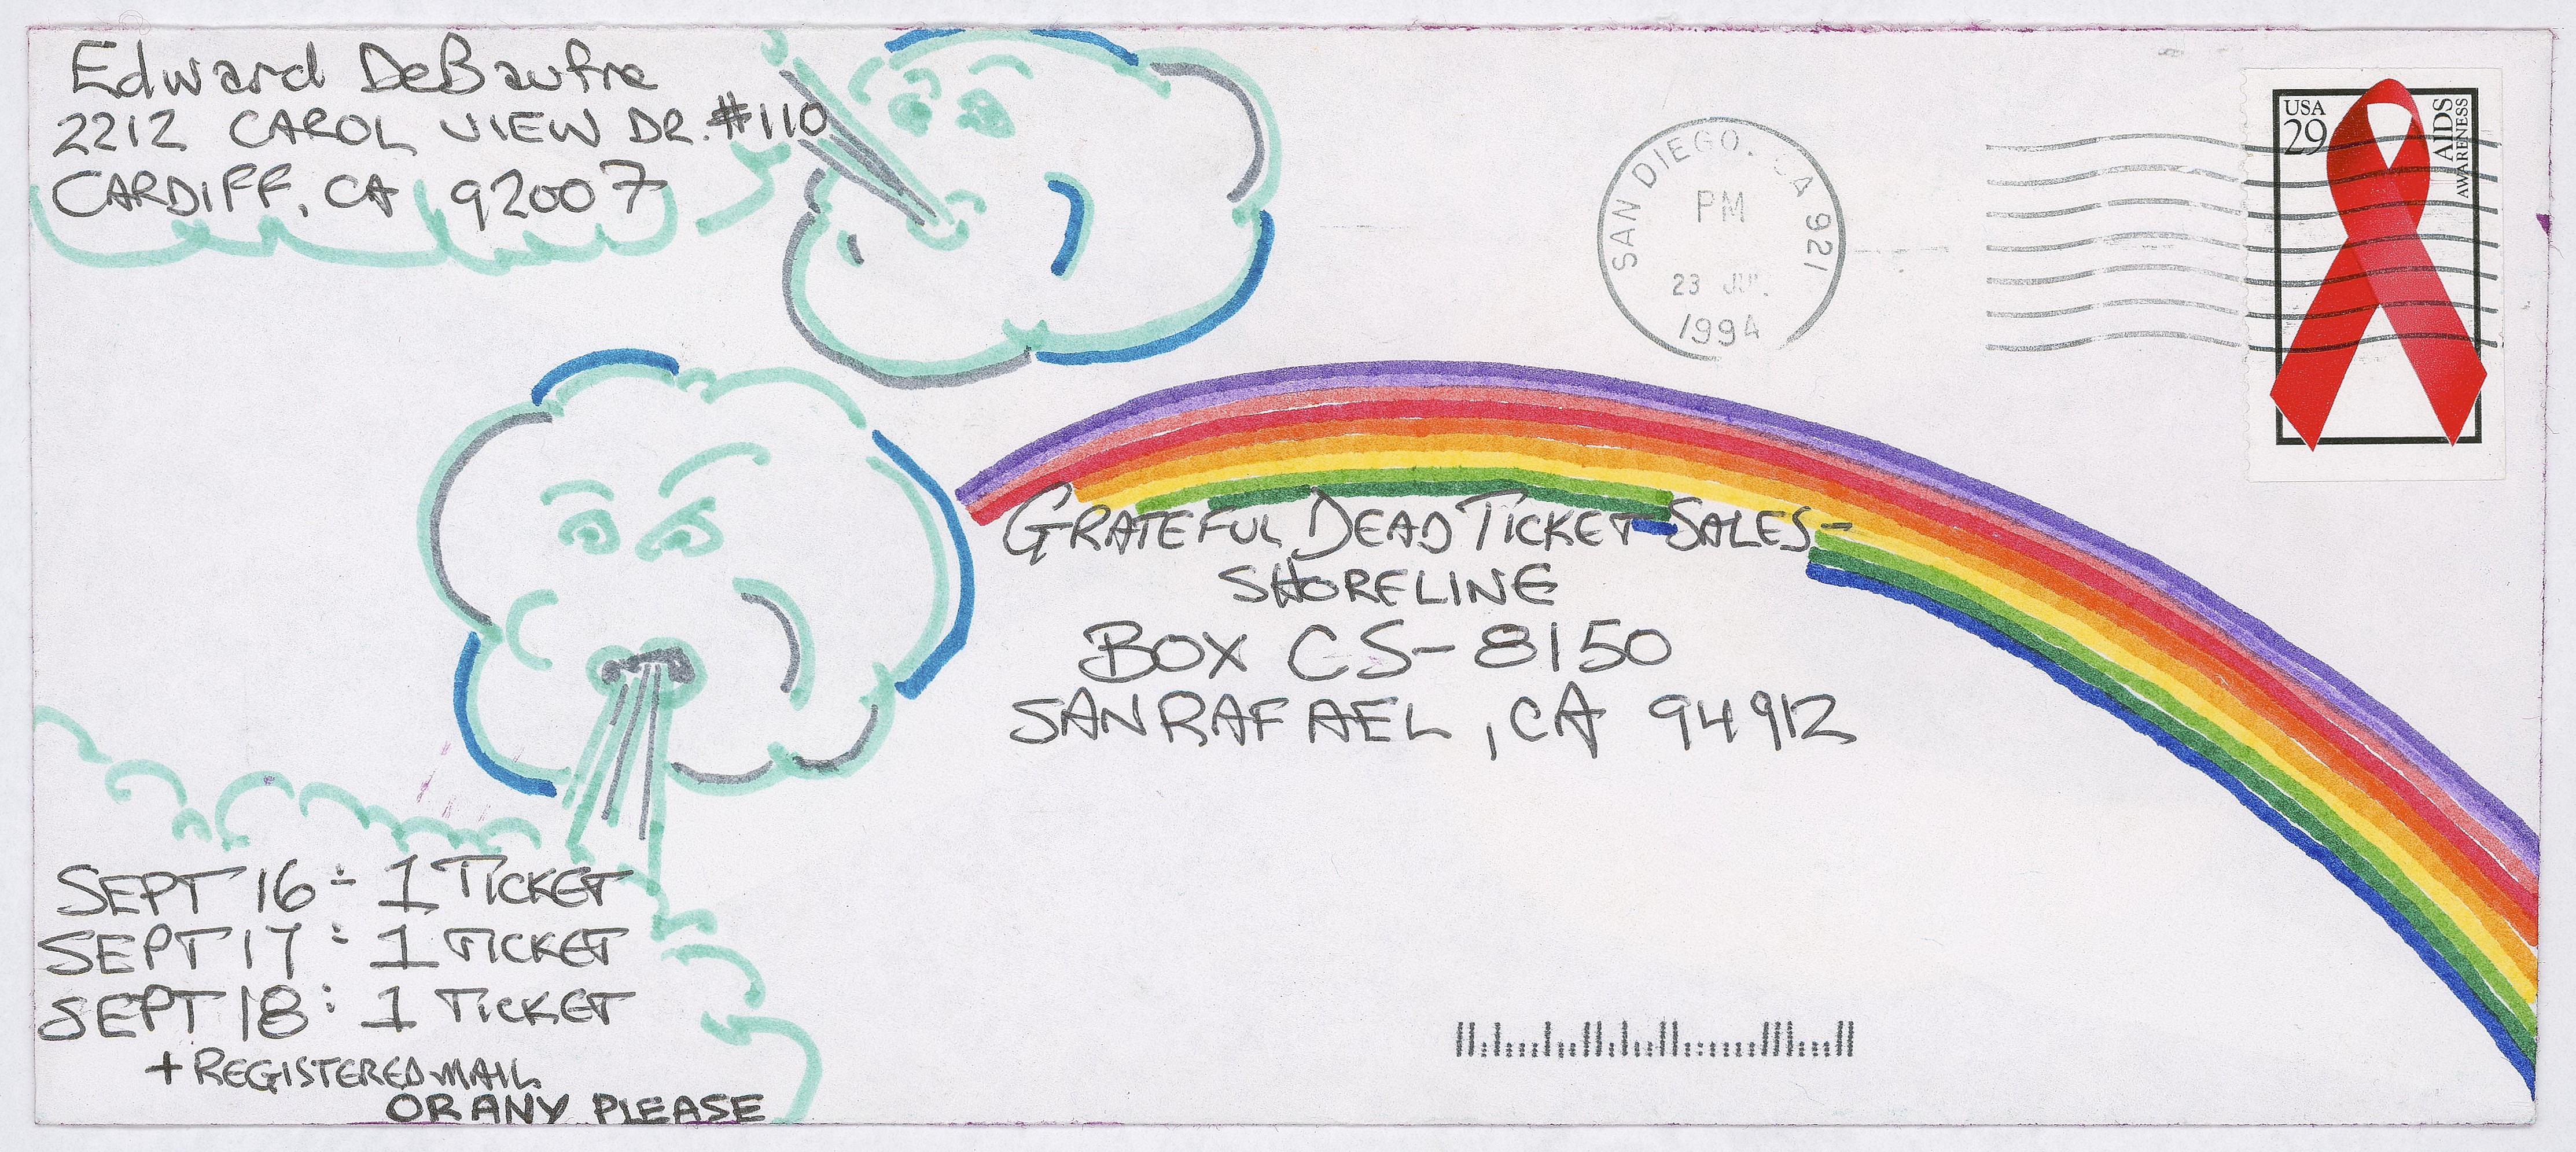 Edward DeBaufre
2212 CAROL VIEW DR. #110
CARDIFF, CA 92007
SAN DIEGO, CA 921
PM
23 JUL
1994
USA
29
AIDS
AWARENESS
GRATEFUL DEAD TICKET SALES-
SHORELINE
BOX CS-8150
SAN RAFAEL, CA 94912
SEPT 16 : 1 TICKET
SEPT 17 : 1 TICKET
SEPT 18 : 1 TICKET
+ REGISTERED MAIL
OR ANY PLEASE